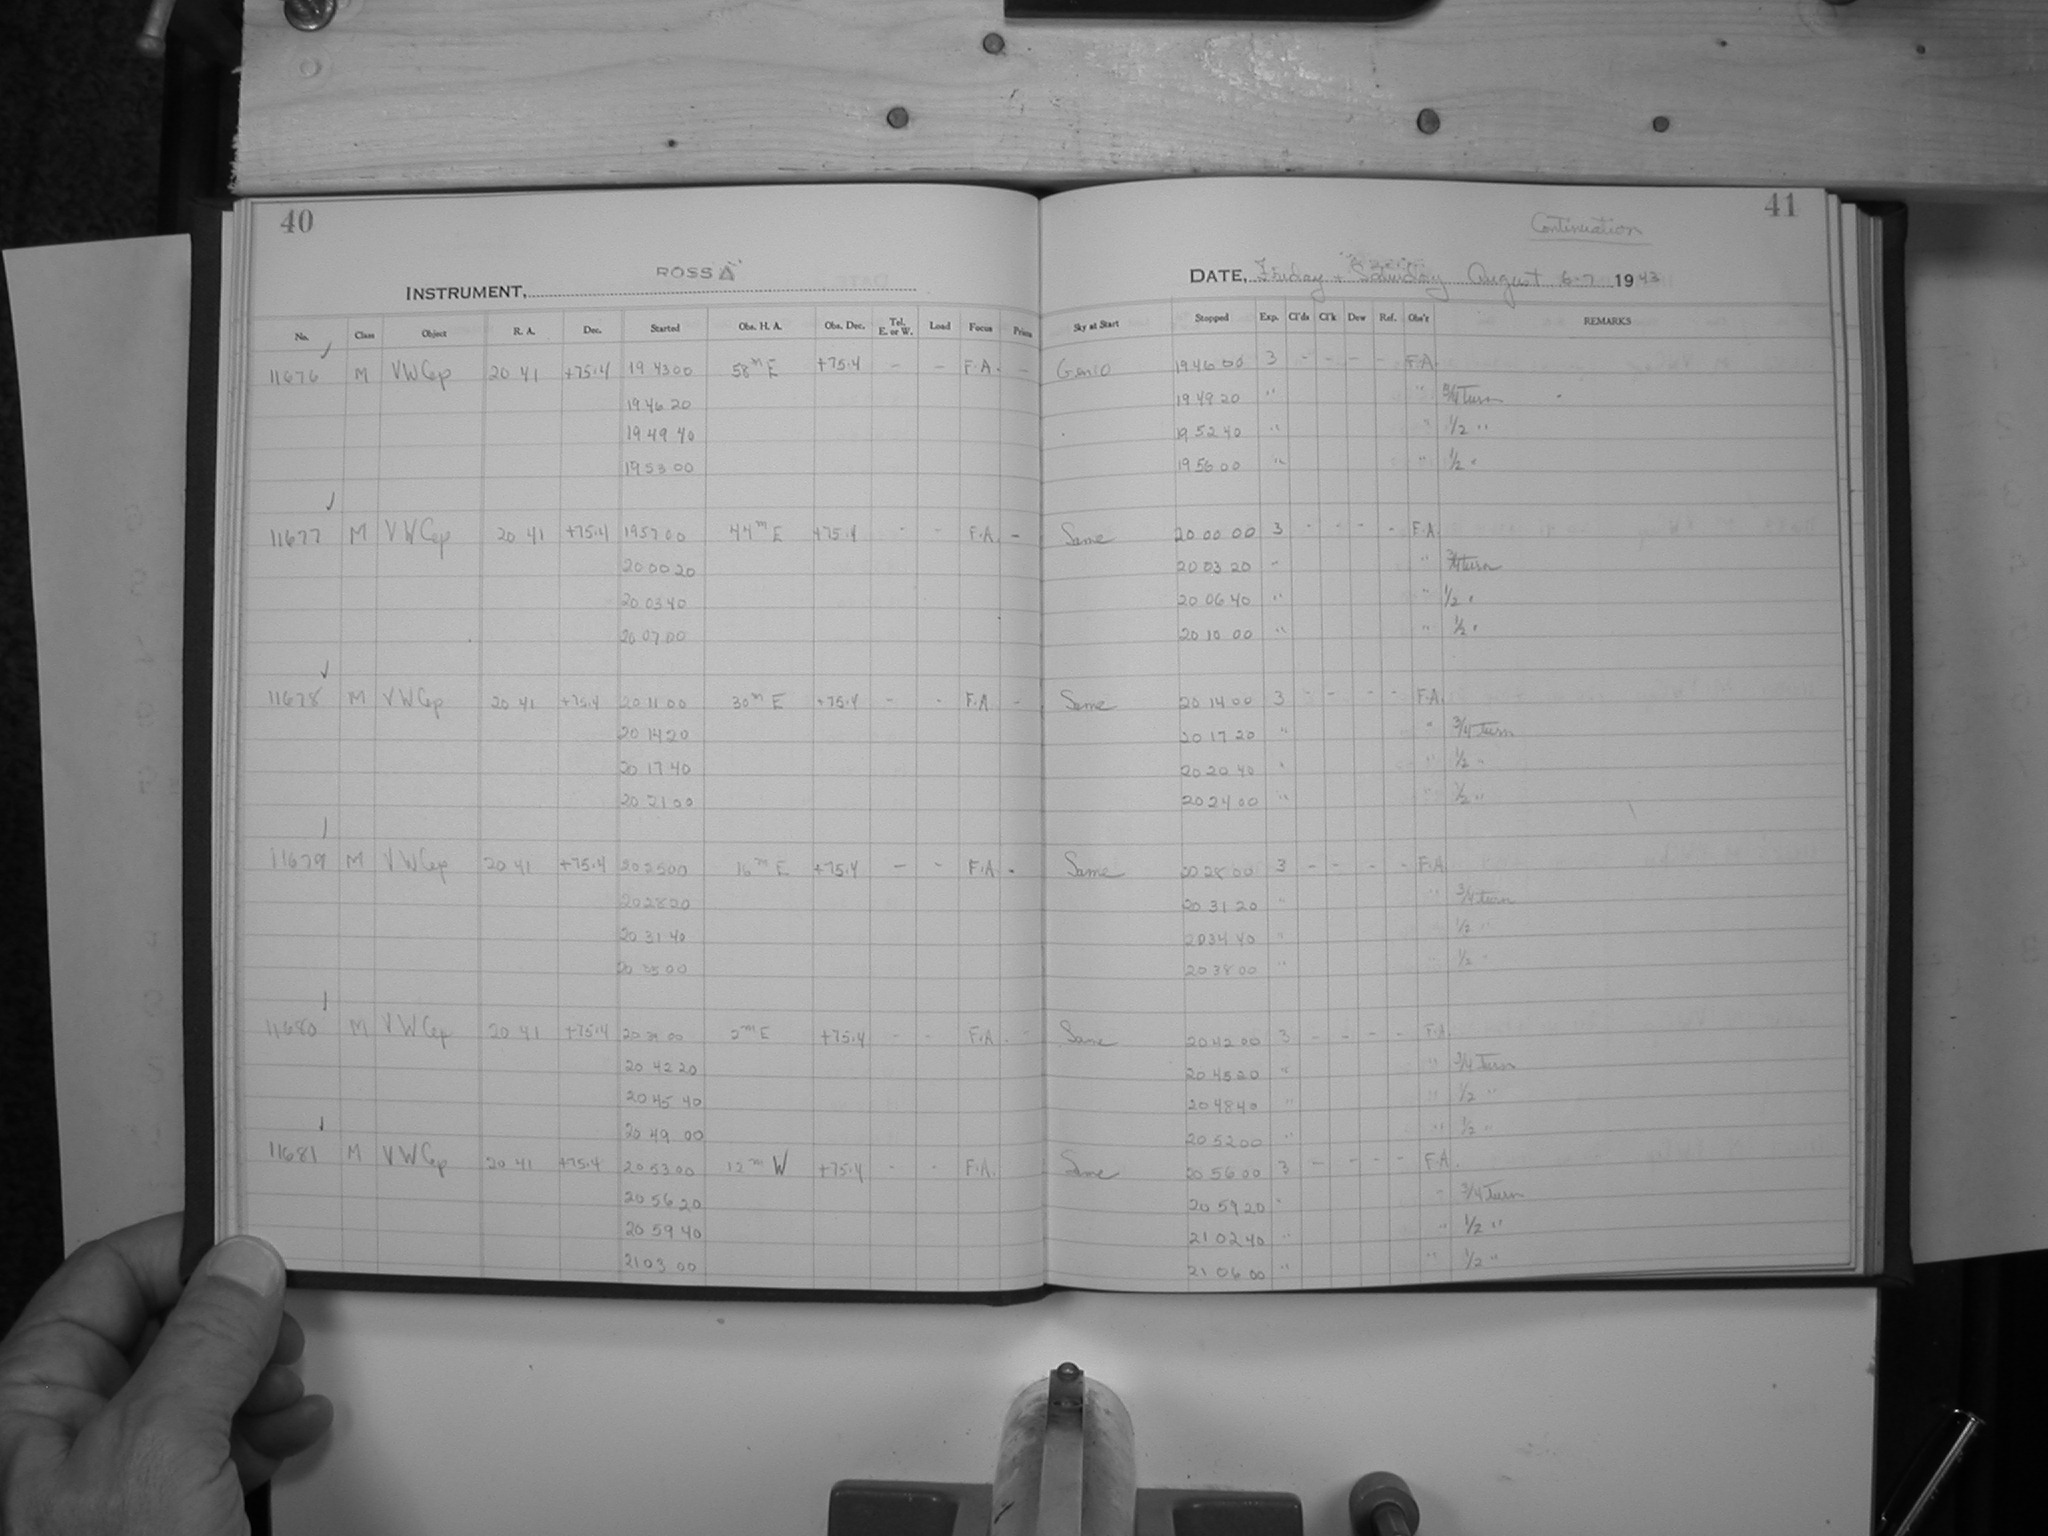 40
ROSS "A"
INSTRUMENT,
No. Class Object R. A. Dec. Started Obs. H. A. Obs. Dec. Tel. E. or W. Load Focus Prism
11676 M VW Cep 20 41 +75.4 19 43 00 58m E +75.4 - - F.A. -
19 46 20
19 49 40
19 53 00
11677 M VW Cep 20 41 +75.4 19 57 00 44m E +75.4 - - F.A. -
20 00 20
20 03 40
20 07 00
11678 M VW Cep 20 41 +75.4 20 11 00 30m E +75.4 - - F.A. -
20 14 20
20 17 40
20 21 00
11679 M VW Cep 20 41 +75.4 20 25 00 16m E +75.4 - - F.A. -
20 28 20
20 31 40
20 35 00
11680 M VW Cep 20 41 +75.4 20 39 00 2m E +75.4 - - F.A. -
20 42 20
20 45 40
20 49 00
11681 M VW Cep 20 41 +75.4 20 53 00 12m W +75.4 - - F.A.
20 56 20
20 59 40
21 03 00
41
Continuation
DATE, Friday + Saturday August 6-7 1943
Sky at Start Stopped Exp. Cl'ds Cl'k Dew Ref. Obs'r REMARKS
19 46 00 3 - - - - F.A.
19 49 20 " " 3/4 turn
19 52 40 " " 1/2 "
19 56 00 " " 1/2 "
Same 20 00 00 3 - - - - F.A.
20 03 20 " " 3/4 turn
20 06 40 " " 1/2 "
20 10 00 " " 1/2 "
Same 20 14 00 3 - - - - F.A.
20 17 20 " " 3/4 turn
20 20 40 " " 1/2 "
20 24 00 " " 1/2 "
Same 20 28 00 3 - - - - F.A.
20 31 20 " " 3/4 turn
20 34 40 " " 1/2 "
20 38 00 " " 1/2 "
Same 20 42 00 3 - - - - F.A.
20 45 20 " " 3/4 turn
20 48 40 " " 1/2 "
20 52 00 " " 1/2 "
Same 20 56 00 3 - - - - F.A.
20 59 20 " " 3/4 turn
21 02 40 " " 1/2 "
21 06 00 " " 1/2 "